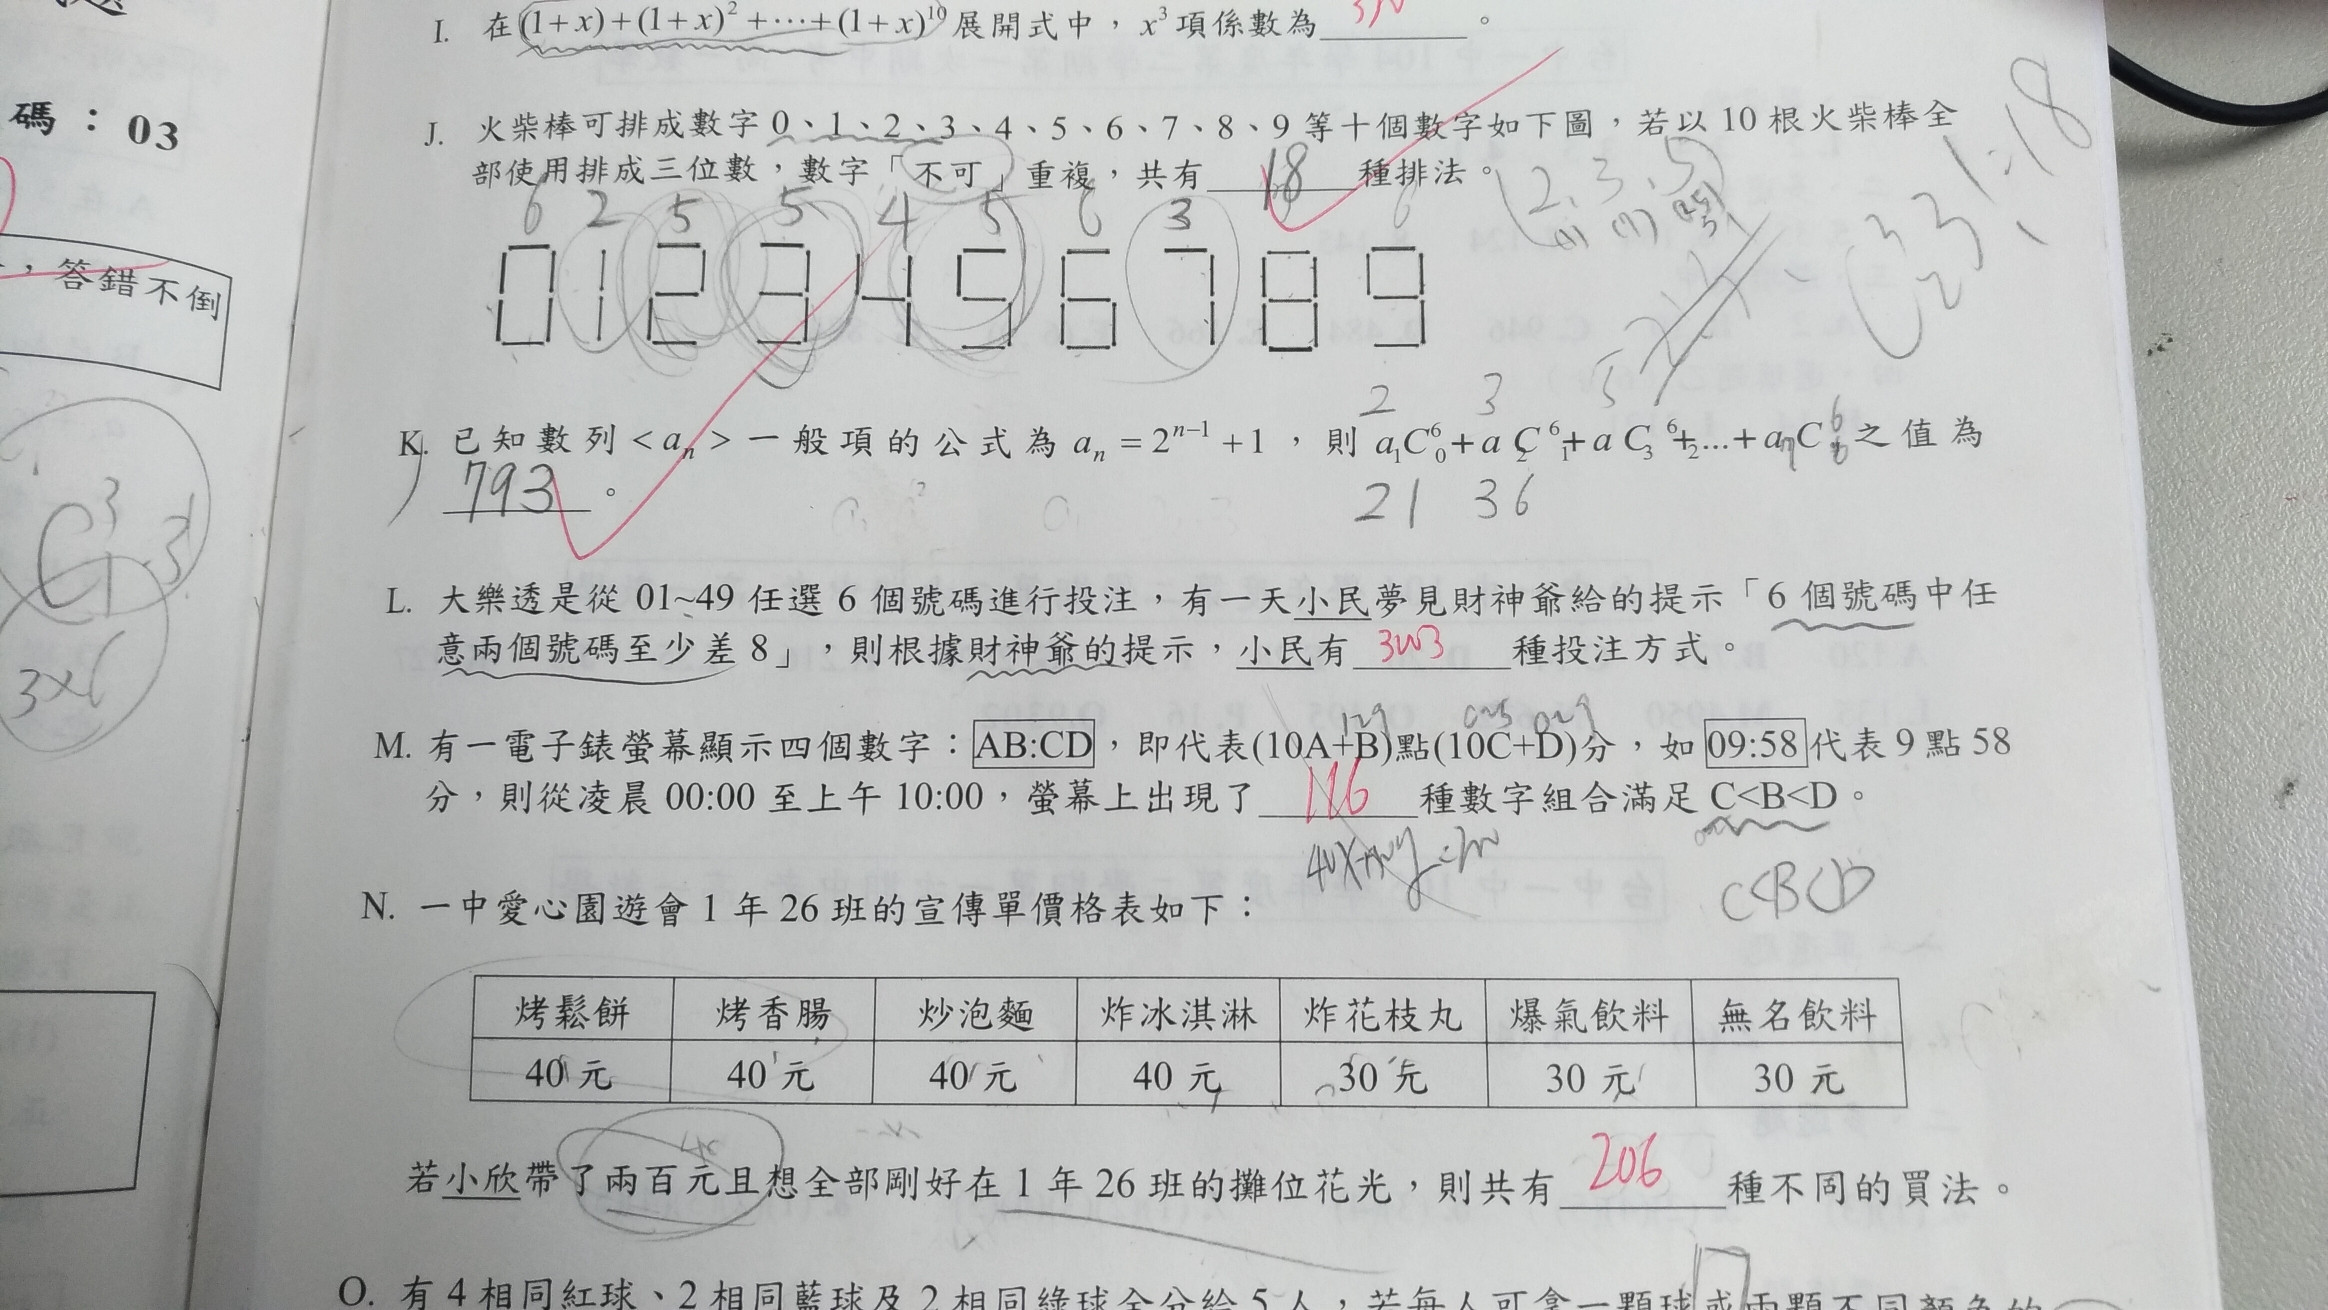 碼：03
，答錯不倒
C³₁·3!
3×6
I. 在(1+x)+(1+x)²+⋯+(1+x)¹⁰展開式中，x³項係數為。
J. 火柴棒可排成數字 0、1、2、3、4、5、6、7、8、9 等十個數字如下圖，若以 10 根火柴棒全
部使用排成三位數，數字「不可」重複，共有 18 種排法。
6 2 5 5 4 5 6 3
0 1 2 3 4 5 6 7 8 9
2 3 5
K. 已知數列<aₙ>一般項的公式為 aₙ = 2ⁿ⁻¹ + 1，則 a₁C⁶₀+a₂C⁶₁+a₃C⁶₂+...+a₇C⁶₆之值為
793。
21 36
L. 大樂透是從 01~49 任選 6 個號碼進行投注，有一天小民夢見財神爺給的提示「6 個號碼中任
意兩個號碼至少差 8」，則根據財神爺的提示，小民有 3003 種投注方式。
M. 有一電子錶螢幕顯示四個數字：AB:CD，即代表(10A+B)點(10C+D)分，如 09:58 代表 9 點 58
分，則從凌晨 00:00 至上午 10:00，螢幕上出現了 116 種數字組合滿足 C<B<D。
C<B<D
N. 一中愛心園遊會 1 年 26 班的宣傳單價格表如下：
烤鬆餅 烤香腸 炒泡麵 炸冰淇淋 炸花枝丸 爆氣飲料 無名飲料
40 元 40 元 40 元 40 元 30 元 30 元 30 元
若小欣帶了兩百元且想全部剛好在 1 年 26 班的攤位花光，則共有 206 種不同的買法。
O. 有 4 相同紅球、2 相同藍球及 2 相同綠球全分給 5 人，若每人可拿一顆球或兩顆不同顏色的